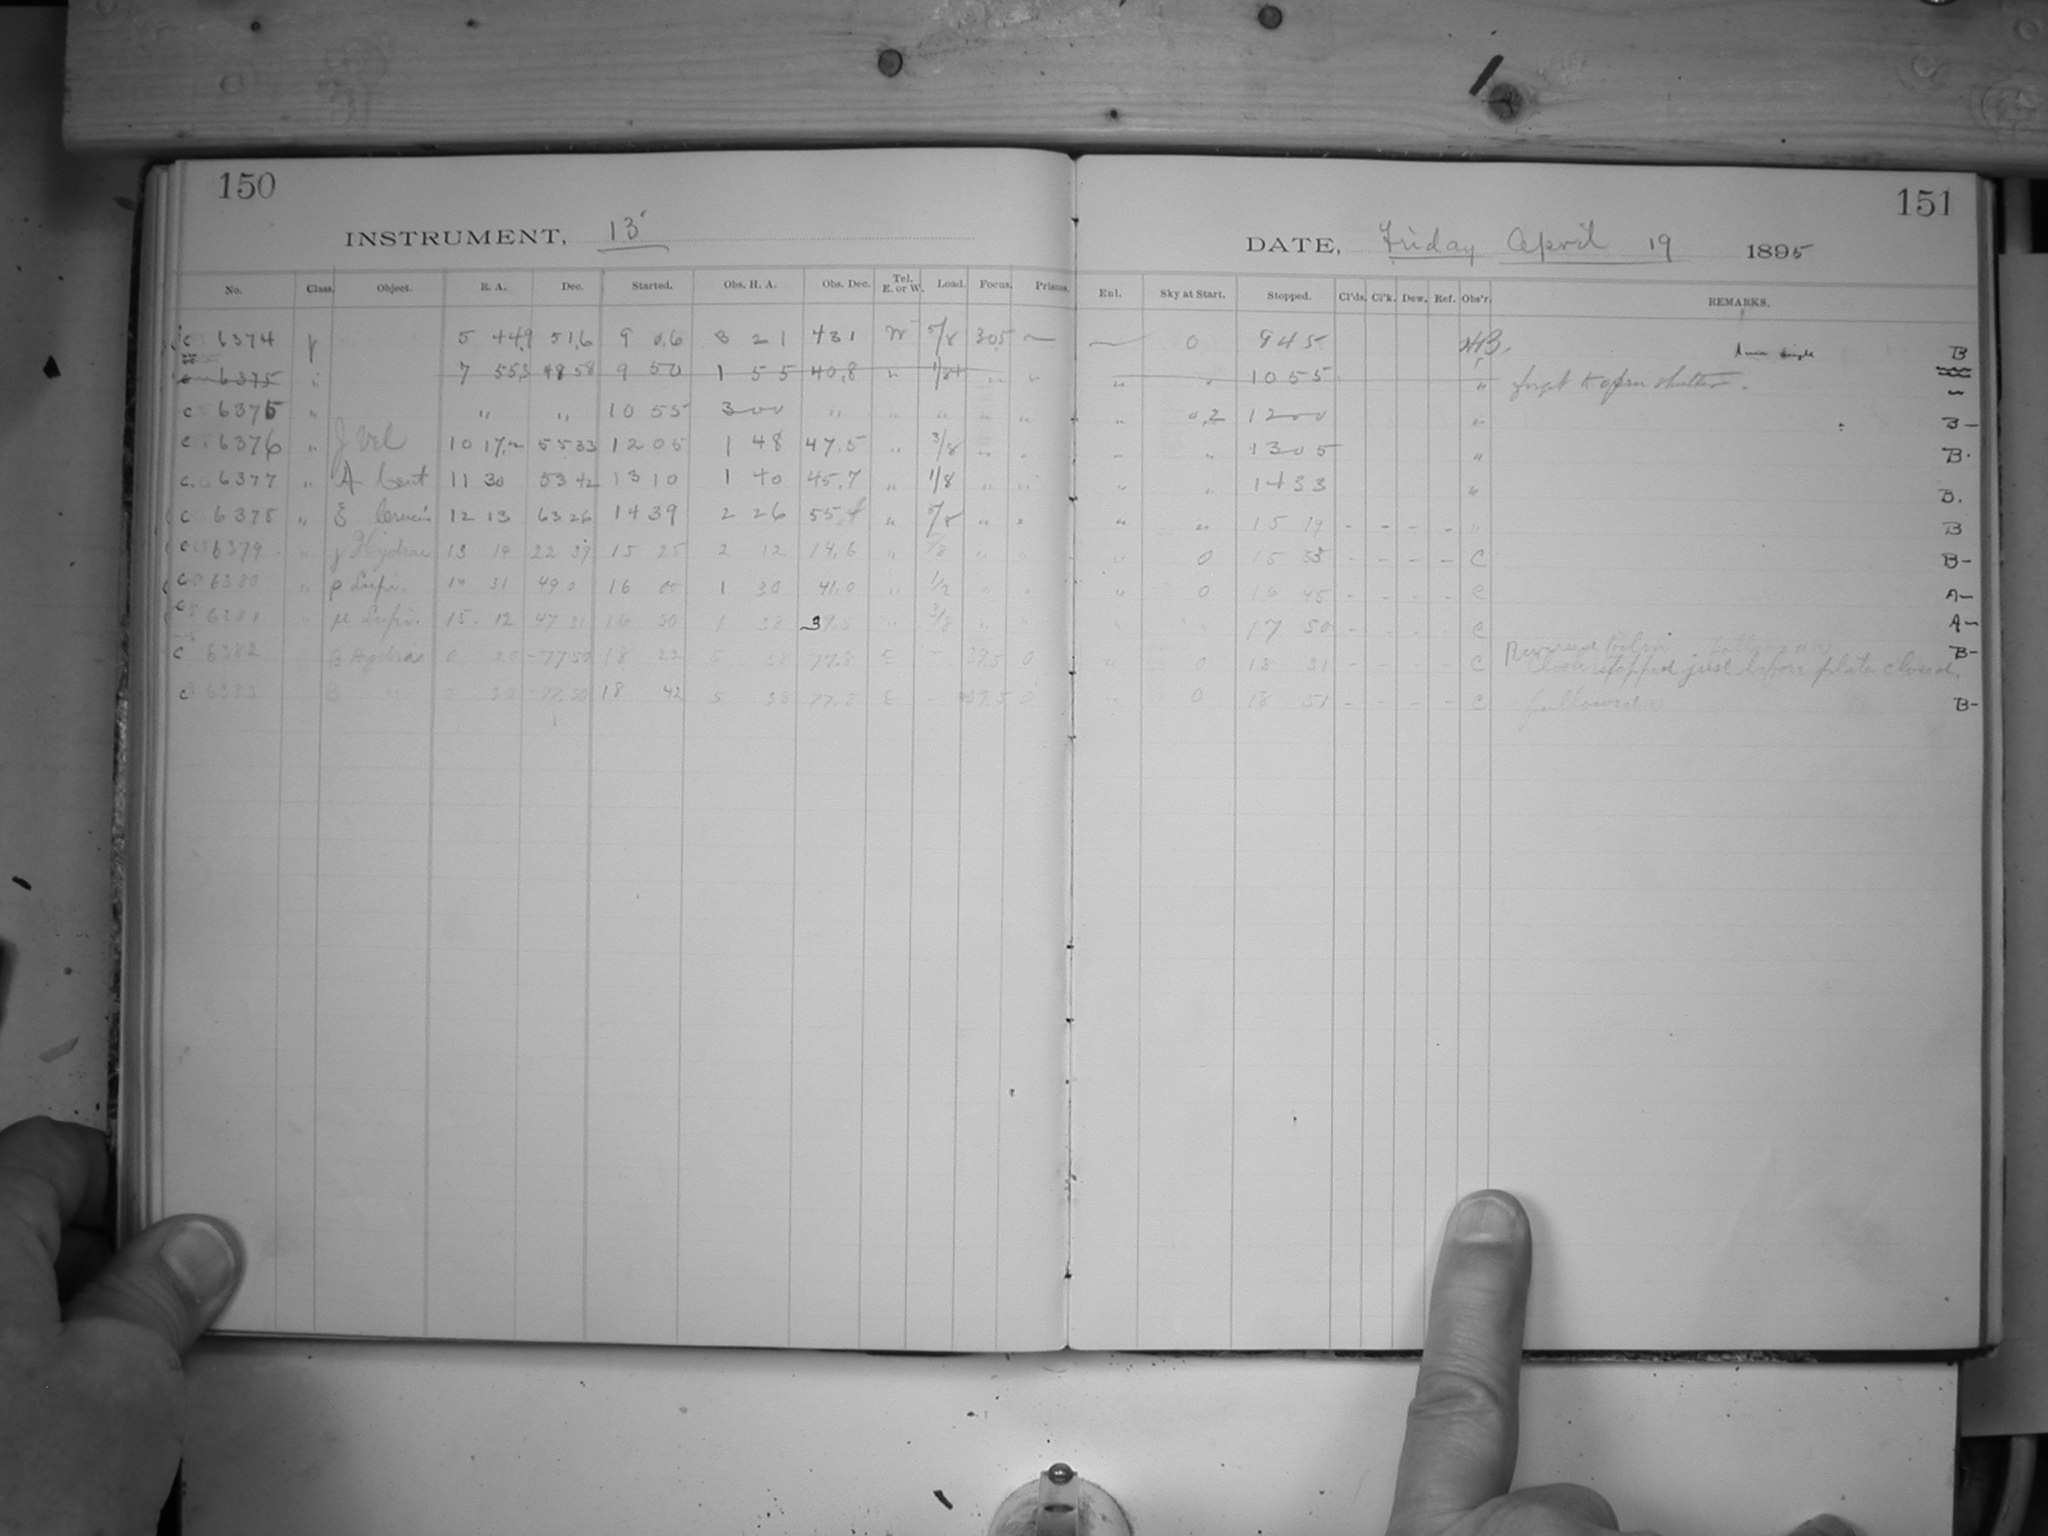 150
INSTRUMENT, 13"
No. Class. Object. R. A. Dec. Started. Obs. H. A. Obs. Dec. Tel. E. or W. Load. Focus. Prisms.
c 6374 5 44,9 51,6 9 0,6 3 21 431 W 5/8 305 —
c 6375 " 7 553 48 58 9 50 1 55 40,8 " " "
c 6375 " " " 10 55 3 00 " " " " "
c 6376 " J Vel 10 17,2 55 33 12 05 1 48 47.5 " 3/8 " "
c. 6377 " A Cent 11 30 53 42 13 10 1 40 45,7 " 1/8 " "
c 6378 " Crucis 12 13 63 26 14 39 2 26 " 5/8 " "
c 6379 " Hydrae 13 14 22 39 15 25 2 12 14,6 " 5/8 " "
c 6380 " ρ Lupi. 14 31 49 0 16 00 1 30 41.0 " 1/2 " "
c 6381 " μ Lupi. 15. 12 47 31 16 50 1 38 " 3/8 " "
c 6382 B Hydrae 0 20 -77 50 18 22 5 38 77.8 E - 39.5 0
c 6383 B " 0 20 18 42 5 38 77.8 E - 39.5 0
151
DATE, Friday April 19 1895
Enl. Sky at Start. Stopped. Cl'ds. Cl'k. Dew. Ref. Obs'r. REMARKS.
— 0 9 45 single B
" " 10 55 " forgot to open shutter.
" 0,2 12 00 " B-
" " 13 05 " B.
" " 14 33 " B.
" " 15 19 - - - - " B
" 0 15 55 - - - - C B-
" 0 16 45 - - - - C A-
" " 17 50 - - - - C A-
Reversed
" 0 18 31 - - - - C Clock stopped just before plate closed. B-
" 0 18 51 - - - - C followed B-